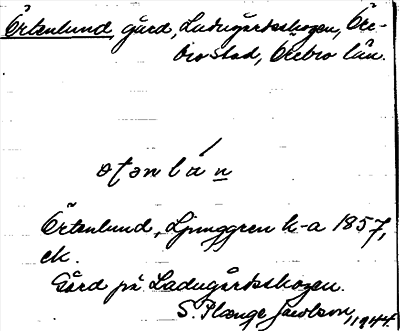 Örtenlund, gård, Ladugårdsskogen, Öre-
bro stad, Örebro län.
Örtenlund, Ljunggren k-a 1857,
ek.
Gård på Ladugårdsskogen.
S. Plænge Jacobson, 1944.